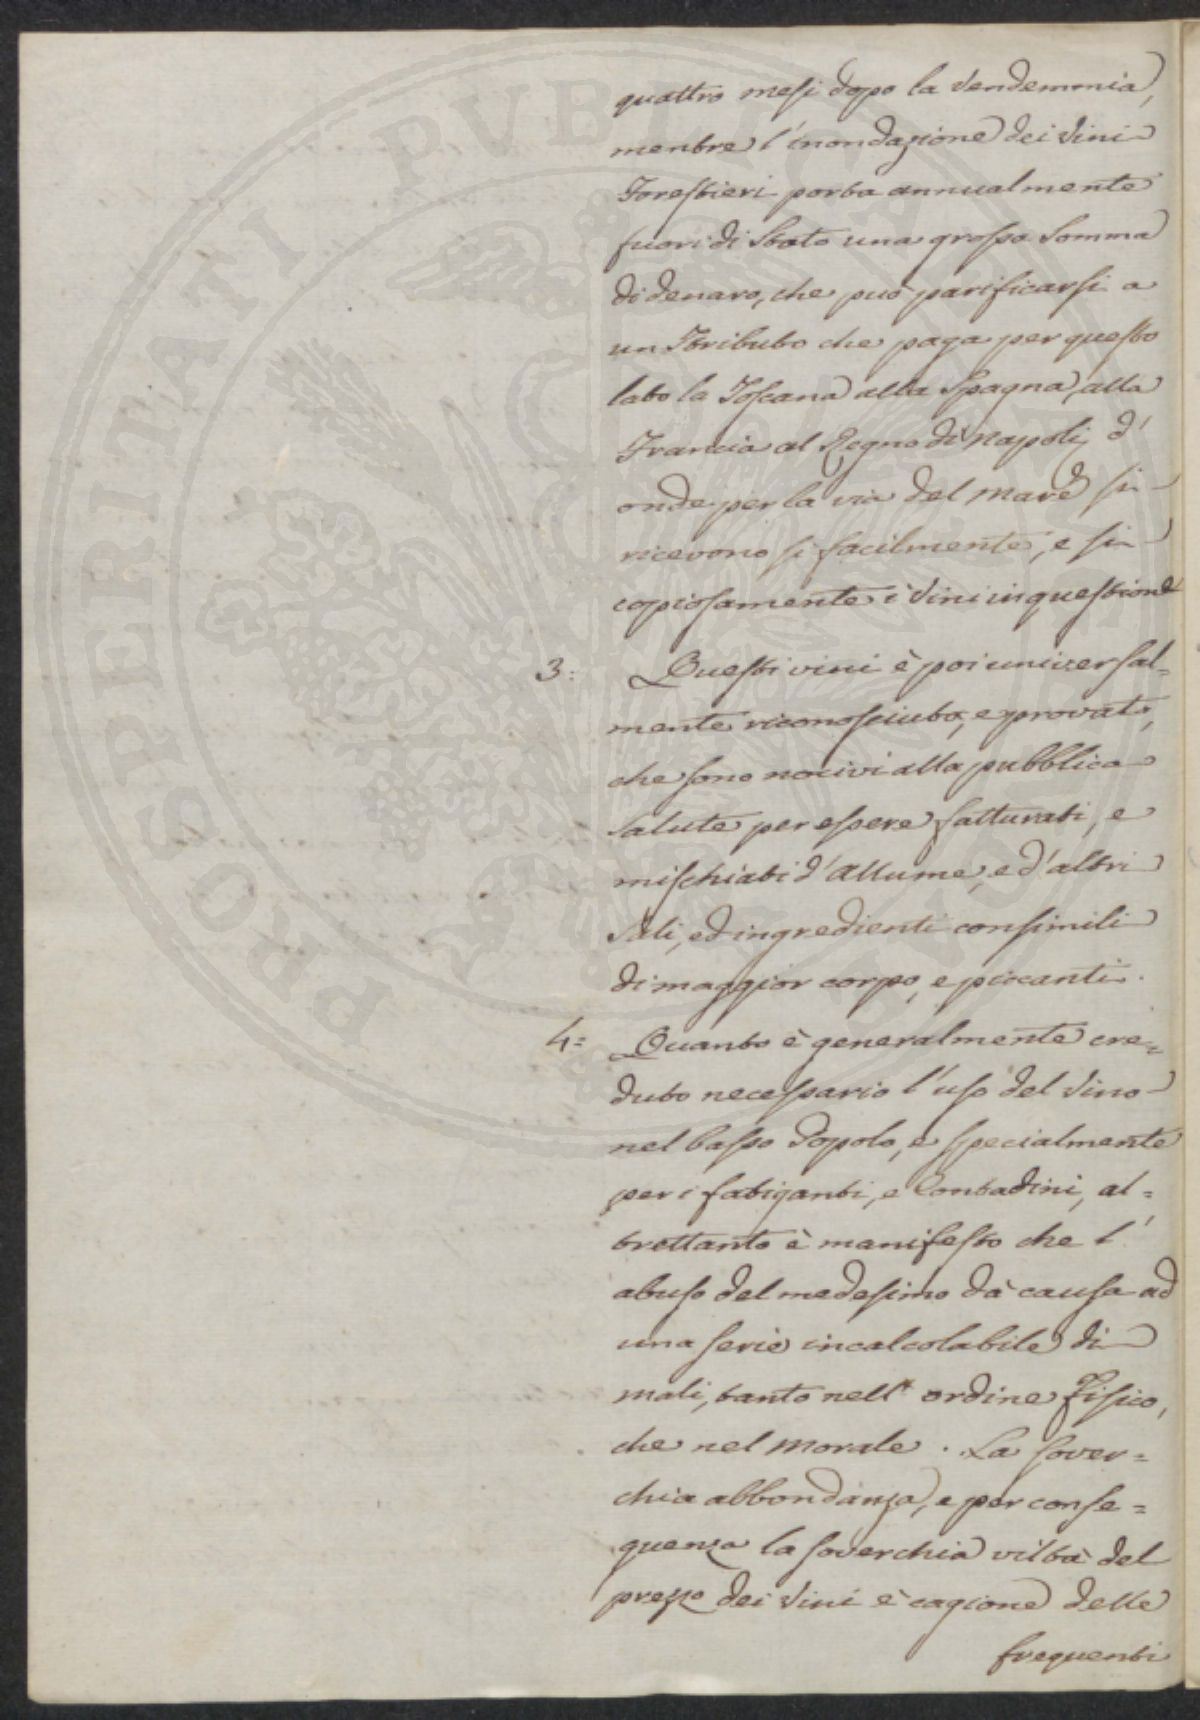 PROSPERITATI PUBLICAE
quattro mesi dopo la Vendemmia,
mentre l'inondazione dei Vini
Forestieri porta annualmente
fuori di Stato una grossa Somma
di denaro, che può parificarsi a
un Tributo che paga per questo
lato la Toscana alla Spagna, alla
Francia al Regno di Napoli, d'
onde per la via del mare si
ricevono sì facilmente, e sì
copiosamente i Vini in questione
3: Questi vini è poi universal=
mente riconosciuto, e provato,
che sono nocivi alla pubblica
Salute per essere fatturati, e
mischiati d'allume, e d'altri
Sali, ed ingredienti consimili
di maggior corpo, e piccanti.
4: Quanto è generalmente cre=
duto necessario l'uso del Vino
nel basso Popolo, e specialmente
per i fatiganti, e Contadini, al=
trettanto è manifesto che l'
abuso del medesimo dà causa ad
una serie incalcolabile di
mali, tanto nell' ordine Fisico,
che nel Morale. La sover=
chia abbondanza, e per conse=
quenza la soverchia viltà del
prezzo dei Vini è cagione delle
frequenti